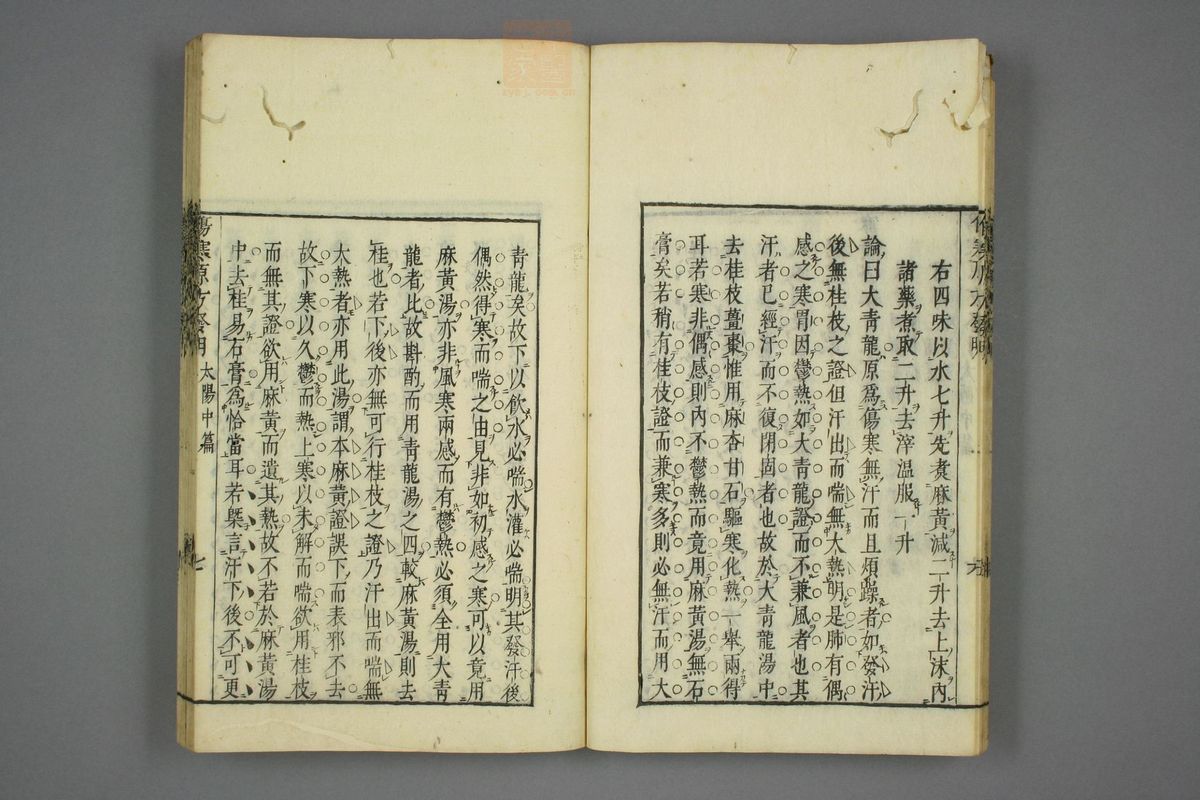 右四味以水七升先煮麻黄減二升去上沫內
諸藥煮取二升去滓温服一升
論曰大青龍原爲傷寒無汗而且煩躁者如發汗
後無桂枝之證但汗出而喘無大熱明是肺有偶
感之寒胃因鬱熱如大青龍證而不兼風者也其
汗者已經汗而不復閉固者也故於大青龍湯中
去桂枝薑棗惟用麻杏甘石驅寒化熱一舉兩得
耳若寒非偶感則內不鬱熱而竟用麻黄湯無石
膏矣若稍有桂枝證而兼寒多則必無汗而用大
青龍矣故下以飲水必喘水灌必喘明其發汗後
偶然得寒而喘之由見非如初感之寒可以竟用
麻黄湯亦非風寒兩感而有鬱熱必須全用大青
龍者比故斟酌而用青龍湯之四較麻黄湯則去
桂也若下後亦無可行桂枝之證乃汗出而喘無
大熱者亦用此湯謂本麻黄證誤下而表邪不去
故下寒以久鬱而熱上寒以未解而喘欲用桂枝
而無其證欲用麻黄而遺其熱故不若於麻黄湯
中去桂易石膏爲恰當耳若槩言汗下後不可更
傷寒原方發明 太陽中篇 七